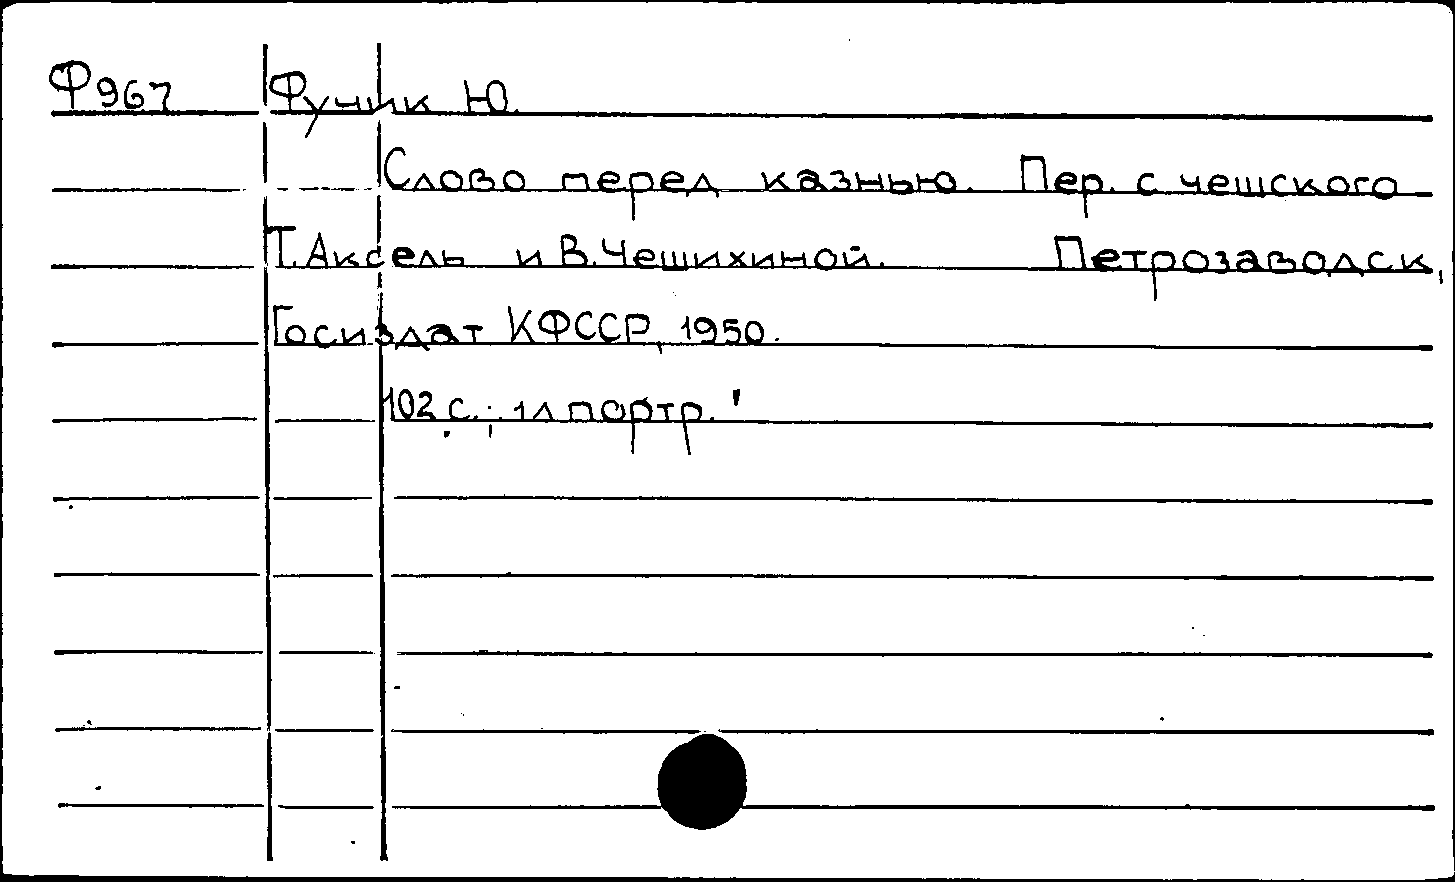 Ф967 Фучик Ю.
Слово перед казнью. Пер. с чешского
Т.Аксель и В.Чешихиной. Петрозаводск,
Госиздат КФССР, 1950.
102 с.; 1л портр.